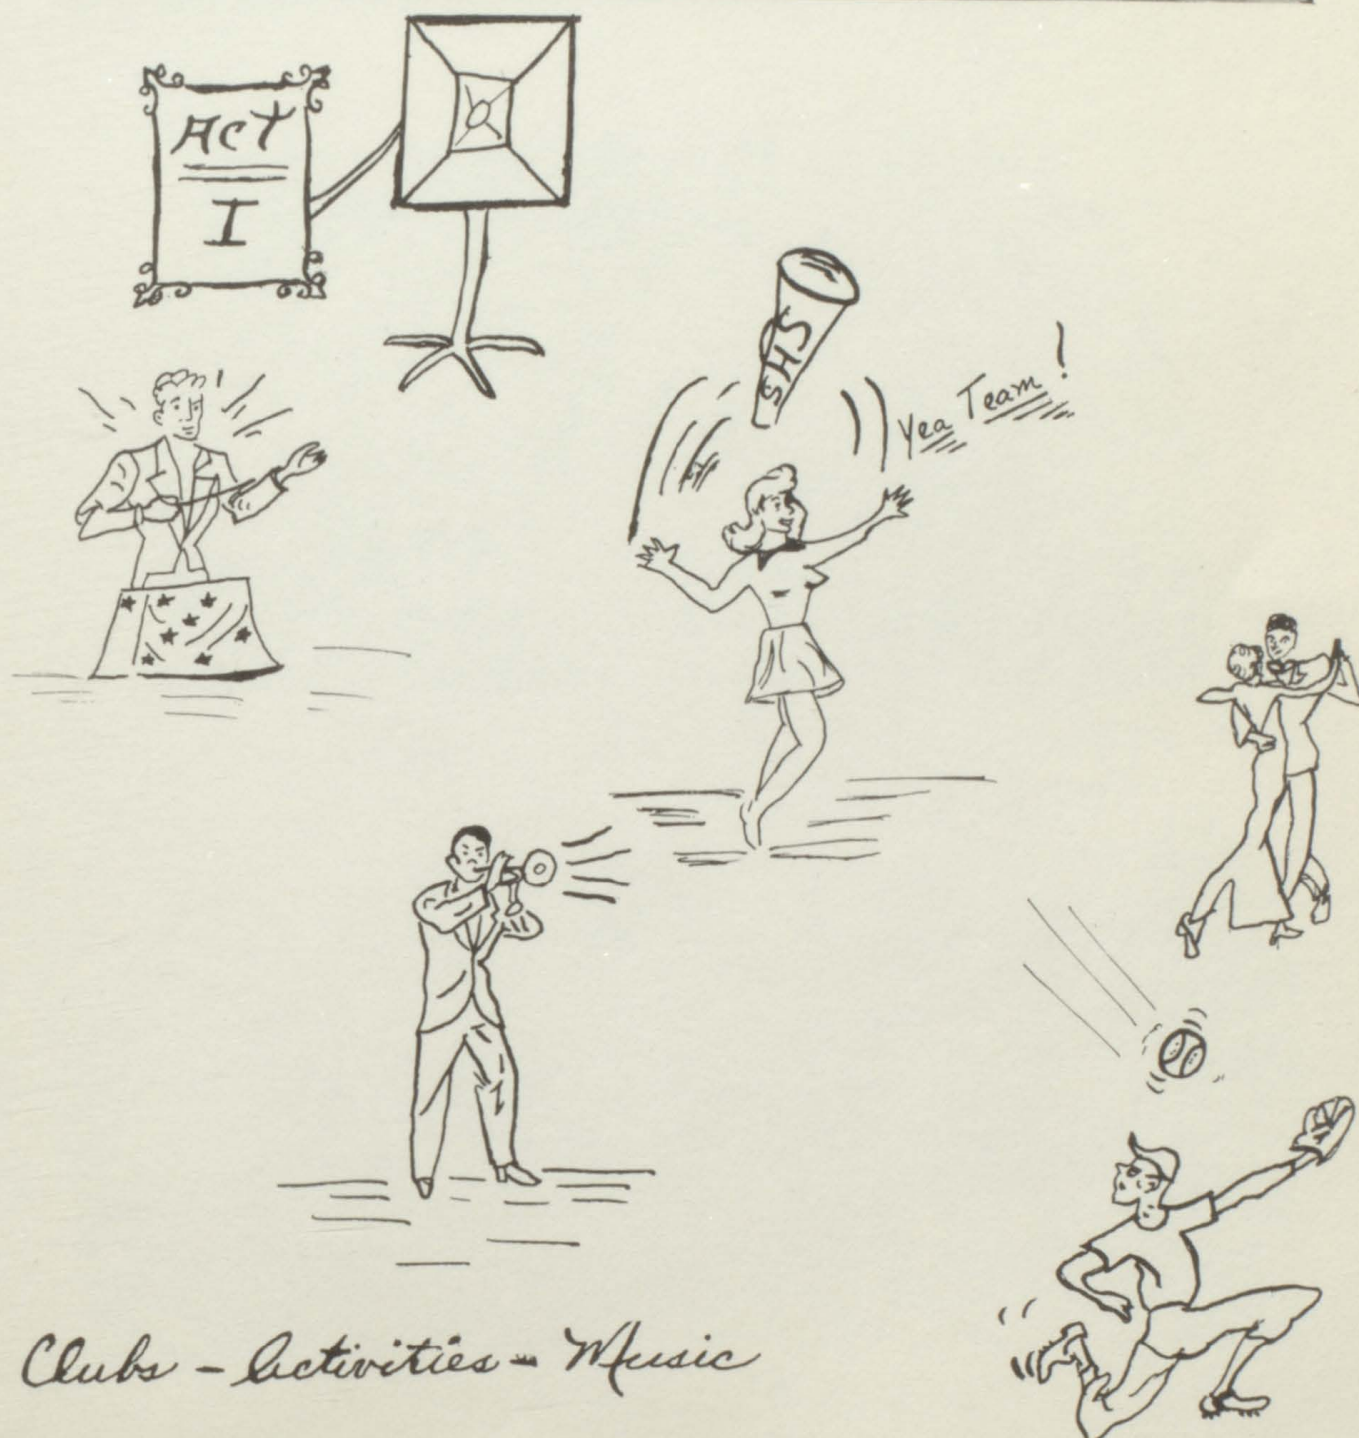 ACT
I
SHS
Yea Team!
Clubs - Activities - Music